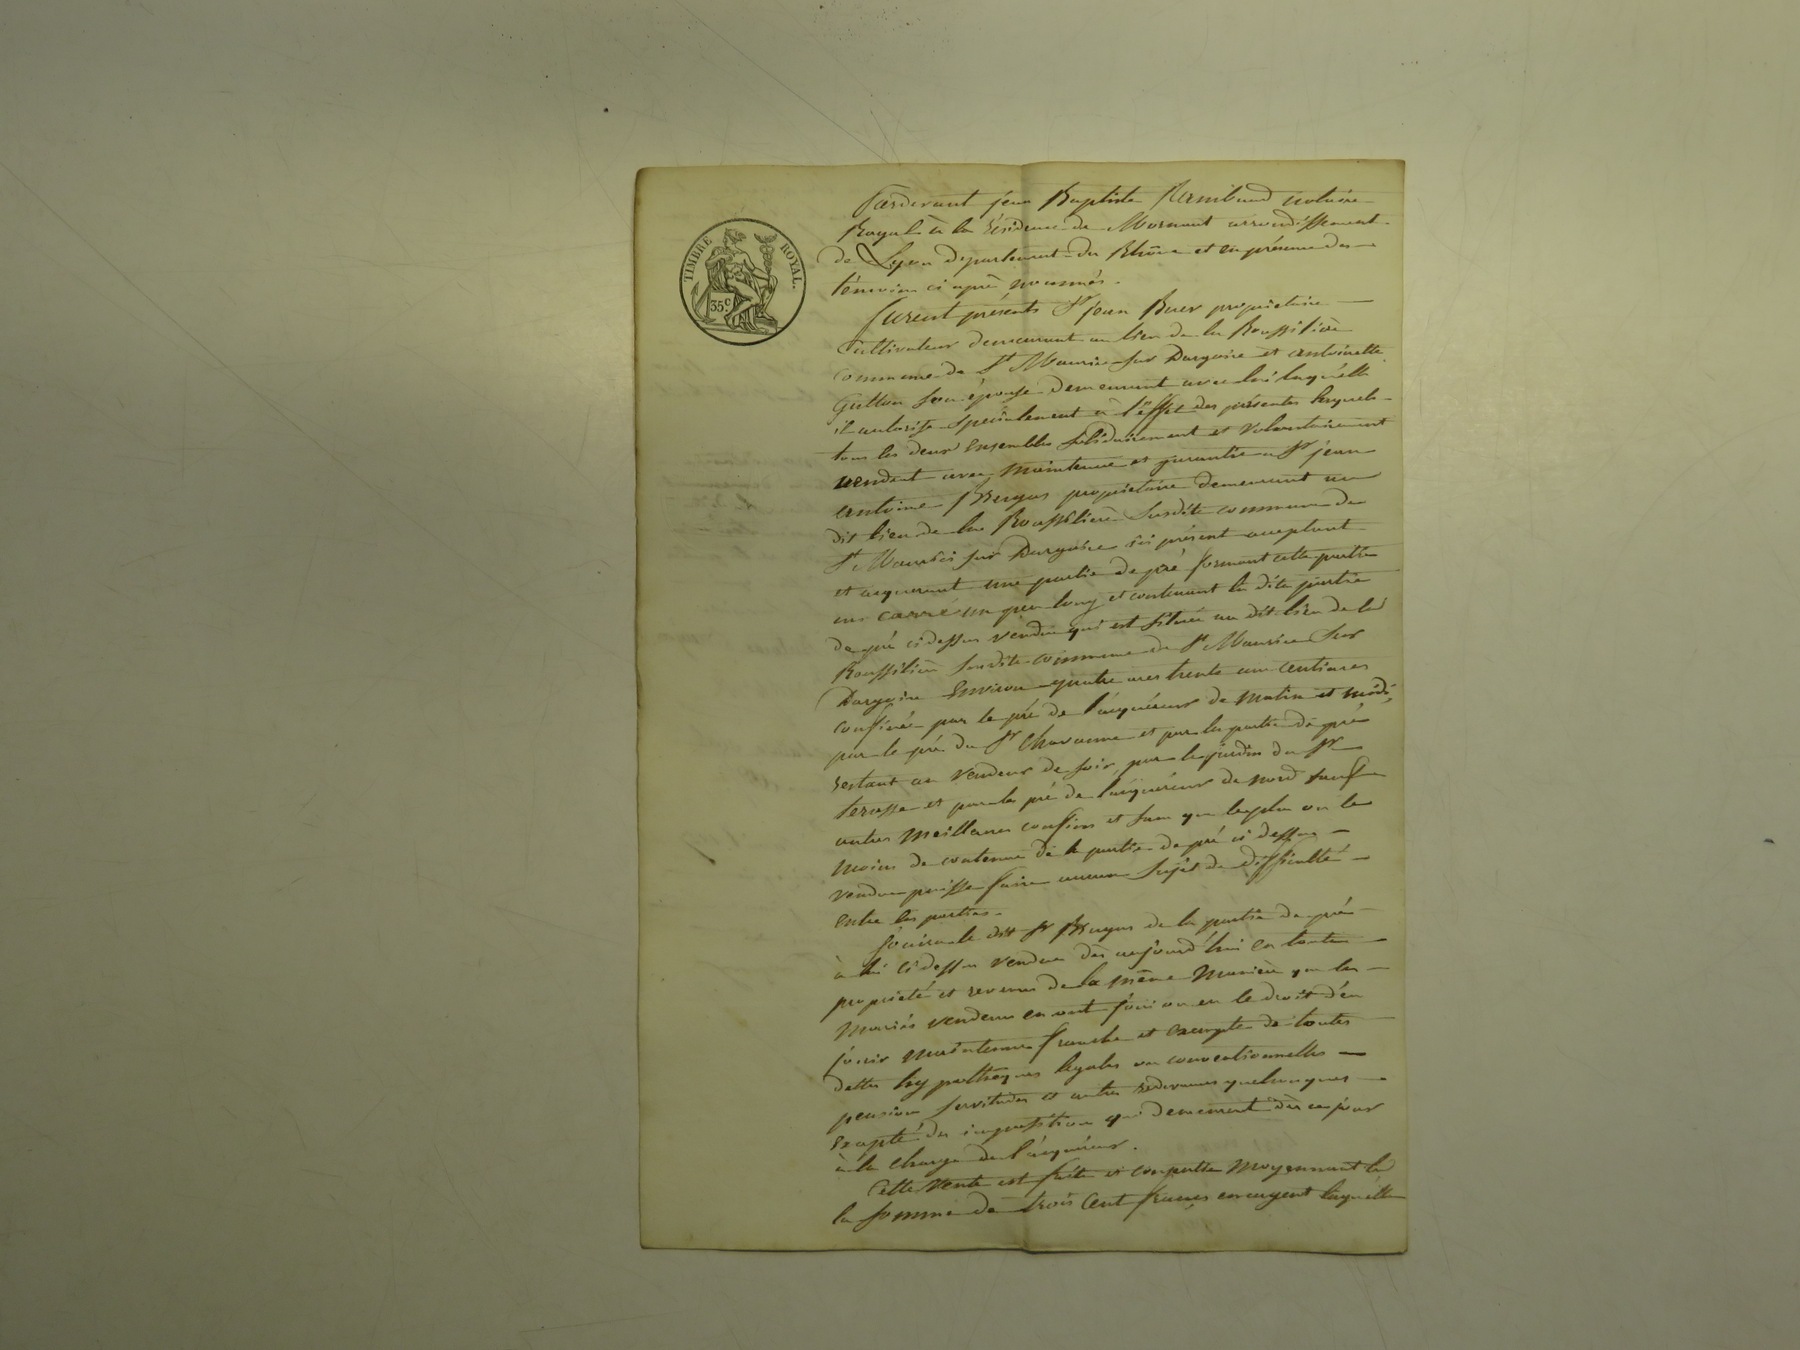 TIMBRE ROYAL.
35c.
Pardevant jean Baptiste notaire
Royal à la résidence de Mornant arrondissement
de Lyon département du Rhône et en présence des
témoins ci après nommés.
furent présents Sr jean propriétaire
cultivateur demeurant au lieu de la Roussilière
commune de St Maurice sur Dargoire et antoinette
Gutton son épouse demeurant avec lui laquelle
il autorise spécialement à l'effet des présentes lesquels
tous les deux ensembles solidairement et volontairement
vendent avec maintenue et garantie a Sr jean
antoine propriétaire demeurant au
dit lieu de la Roussilière susdite commune de
St Maurice sur Dargoire ici présent acceptant
et acquerant une partie de pré formant cette partie
un carré un peu long et contenant la dite partie
de pré ci dessus vendue qui est située au dit lieu de la
Roussilière susdite commune de St Maurice sur
Dargoire environ quatre ares trente un centiares
confinée par le pré de l'acquéreur de matin et midi,
par le pré du Sr Chavanne et par la partie de pré
restant au vendeur de soir, par le jardin du Sr
terrasse et par le pré de l'acquéreur de nord sauf
autres meilleurs confins et sans que le plus ou le
moins de contenue de la partie de pré ci dessus
vendue puisse faire aucun sujet de difficulté
entre les parties.
jouira le dit Sr de la partie de pré
à lui ci dessus vendue dès aujourd'hui en toute
propriété et revenus de la même manière que les
mariés vendeurs en ont joui ou eu le droit d'en
jouir maintenue franche et exempte de toutes
dettes hypothèques légales ou conventionnelles
pension servitudes et autres redevances quelconques
excepté des imposition qui demeurent dès ce jour
à la charge de l'acquéreur.
Cette vente est faite et moyennant la
la somme de trois cent francs en argent laquelle